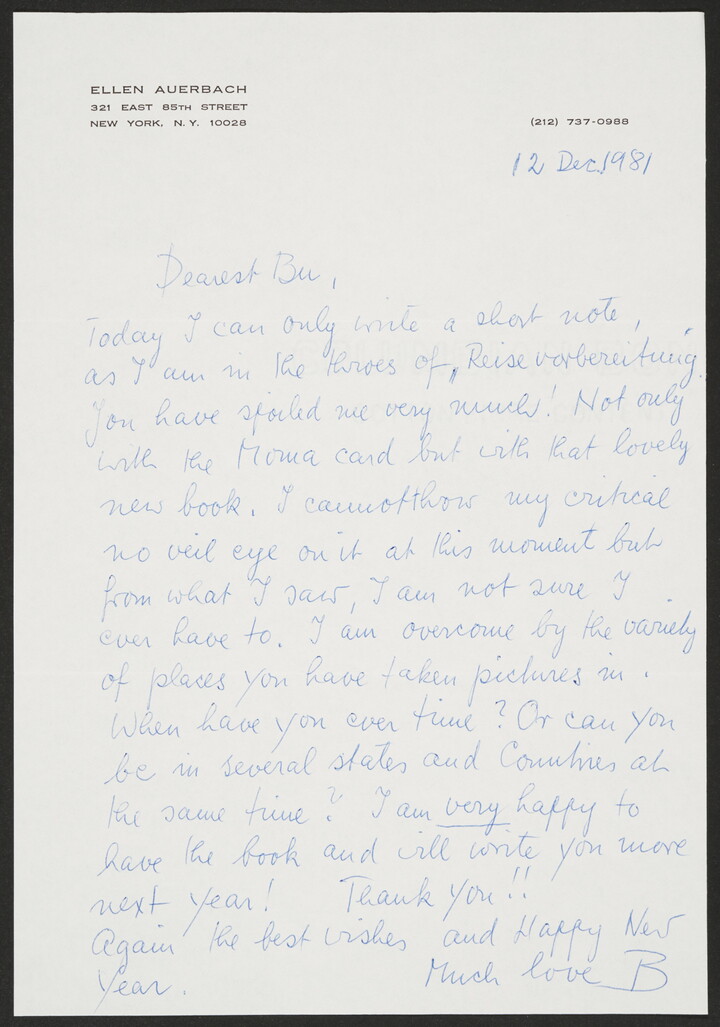 ELLEN AUERBACH
321 EAST 85TH STREET
NEW YORK, N.Y. 10028
(212) 737-0988
12 Dec. 1981
Dearest Bu,
Today I can only write a short note,
as I am in the throes of „Reisevorbereitung"
You have spoiled me very much! Not only
with the Moma card but with that lovely
new book. I cannot throw my critical
no veil eye on it at this moment but
from what I saw, I am not sure I
ever have to. I am overcome by the variety
of places you have taken pictures in.
When have you ever time? Or can you
be in several states and Countries at
the same time? I am very happy to
have the book and will write you more
next year! Thank you!!
Again the best wishes and Happy New
Year. Much love B